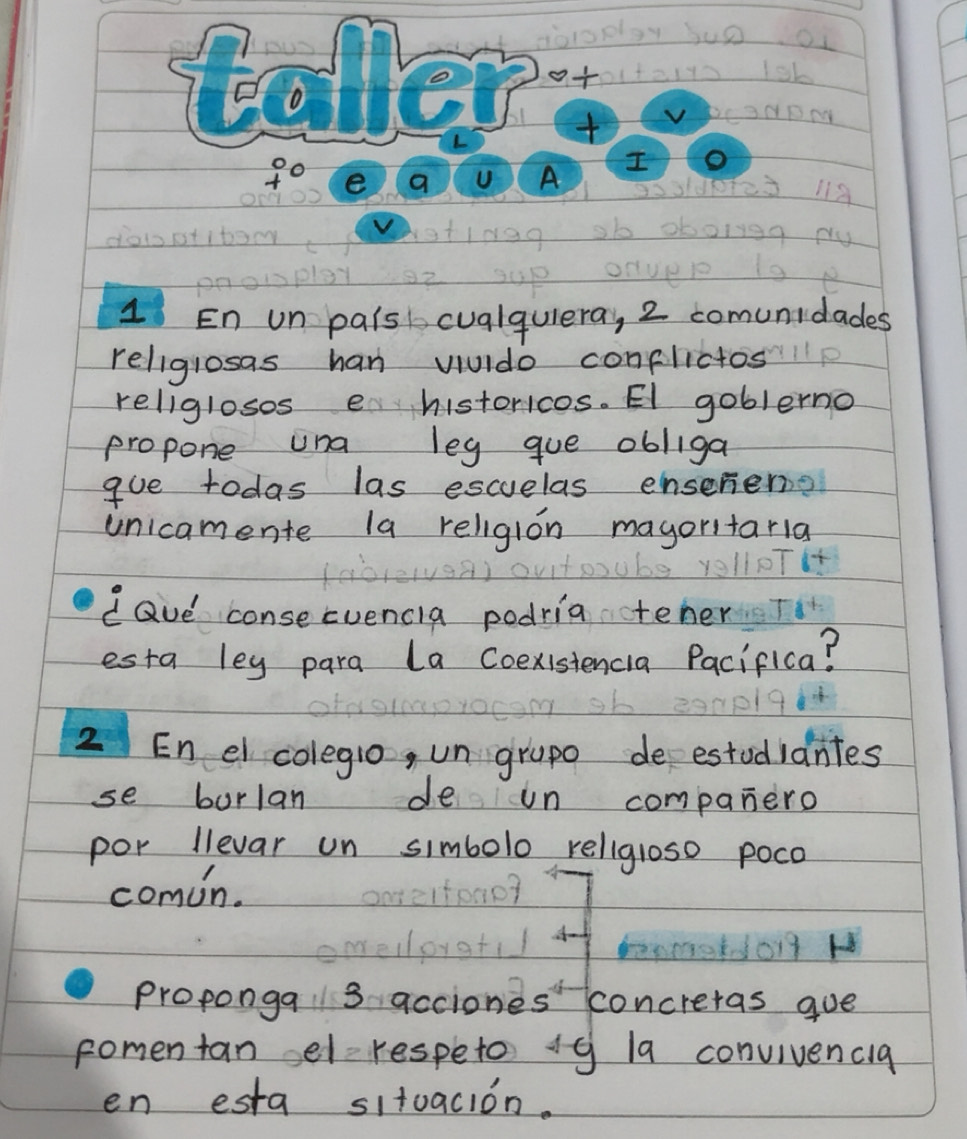 taller
evaluAtIvo
1 En un país cualquiera, 2 comunidades
religiosas han vivido conflictos
religiosos e historicos. El gobierno
propone una ley que obliga
que todas las escuelas enseñen
unicamente la religión mayoritaria
¿Qué consecuencia podría tener
esta ley para La Coexistencia Pacífica?
2 En el colegio, un grupo de estudiantes
se burlan de un compañero
por llevar un simbolo religioso poco
común.
Proponga 3 acciones concretas que
fomentan el respeto y la convivencia
en esta situación.